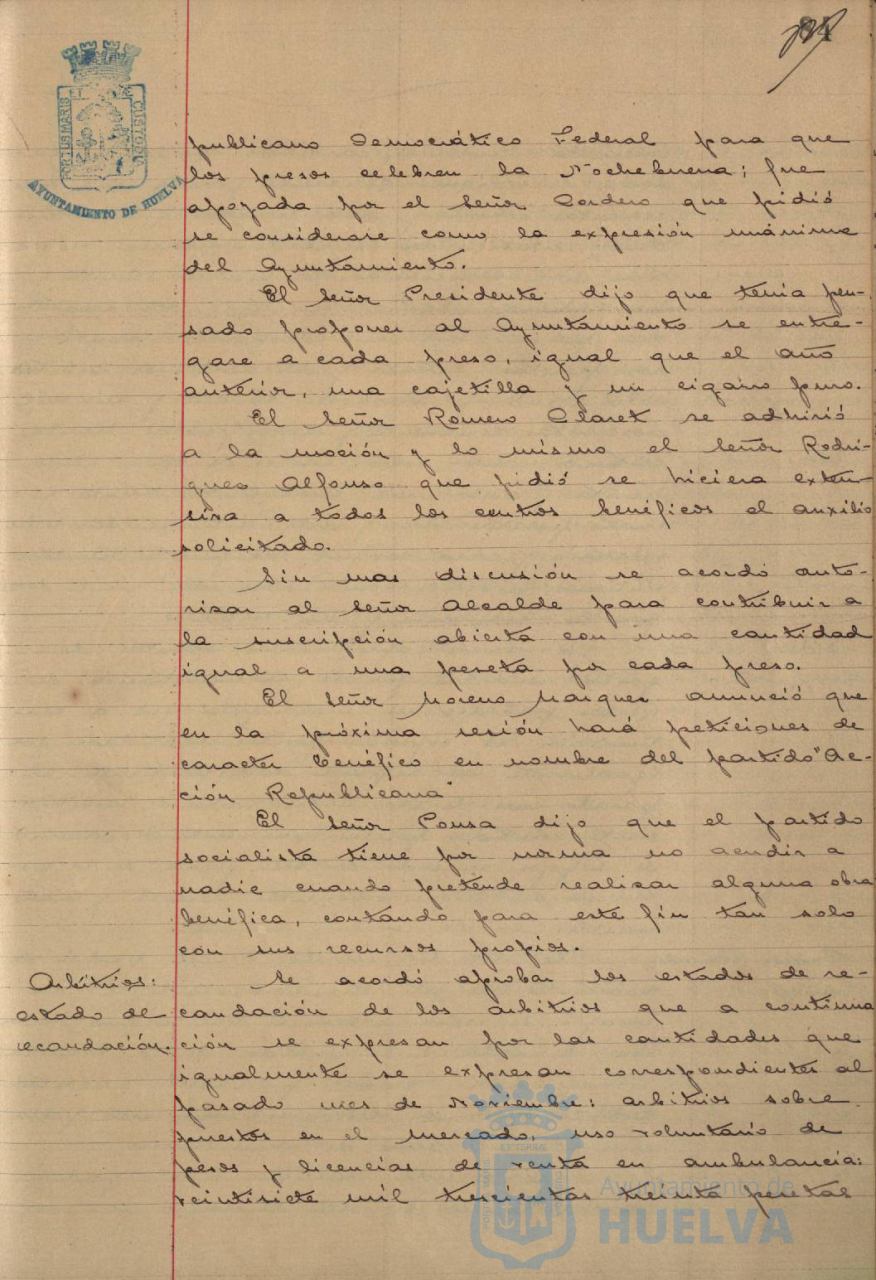 84
PORTUS MARIS ET TERRAE CUSTODIA
AYUNTAMIENTO DE HUELVA
publicano Democrático Federal para que
los presos celebren la Nochebuena; fue
apoyada por el Señor Cordero que pidió
se considerase como la expresión unánime
del Ayuntamiento.
El Señor Presidente dijo que tenia pen-
sado proponer al Ayuntamiento se entre-
gase a cada preso, igual que el año
anterior, una cajetilla y un cigarro puro.
El Señor Romero Claret se adhirió
a la moción y lo mismo el Señor Rodri-
guez Alfonso que pidió se hiciera exten-
siva a todos los centros benéficos el auxilio
solicitado.
Sin mas discusión se acordó auto-
rizar al Señor Alcalde para contribuir a
la suscripción abierta con una cantidad
igual a una peseta por cada preso.
El Señor Moreno Marquez anunció que
en la próxima sesión hará peticiones de
caracter benéfico en nombre del partido "Ac-
ción Republicana"
El Señor Ponsa dijo que el partido
socialista tiene por norma no acudir a
nadie cuando pretende realizar alguna obra
benéfica, contando para este fin tan solo
con sus recursos propios.
Arbitrios:
estado de
recaudación.
Se acordó aprobar los estados de re-
caudación de los arbitrios que a continua
ción se expresan por las cantidades que
igualmente se expresan correspondientes al
pasado mes de Noviembre: arbitrios sobre
puestos en el Mercado, uso voluntario de
pesos y licencias de venta en ambulancia:
veintisiete mil trescientas treinta pesetas
Ayuntamiento de
HUELVA